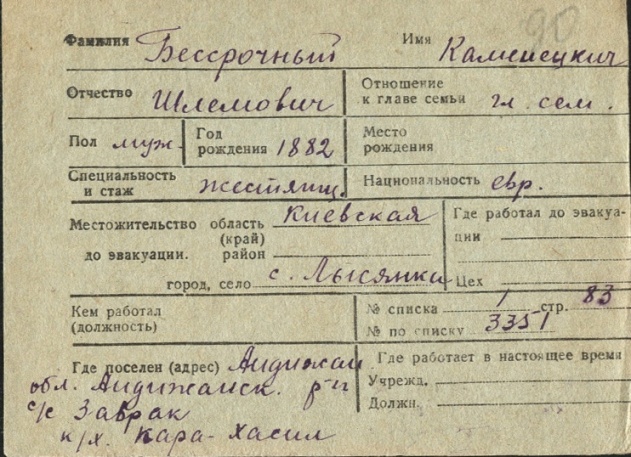 90
Фамилия Бессрочный Имя Каменецкич
Отчество Шлемович Отношение к главе семьи гл. сем.
Пол муж. Год рождения 1882 Место рождения
Специальность и стаж жестянщ. Национальность евр.
Местожительство область Киевская Где работал до эвакуа-
(край) ции
до эвакуации. район
город, село с. Лысянка Цех
Кем работал № списка 1 стр. 83
(должность) № по списку 3351
Где поселен (адрес) Андижан Где работает в настоящее время
обл. Андижанск. р-н Учрежд.
с/с Заврак Должн.
к/х. Кара-Хасил